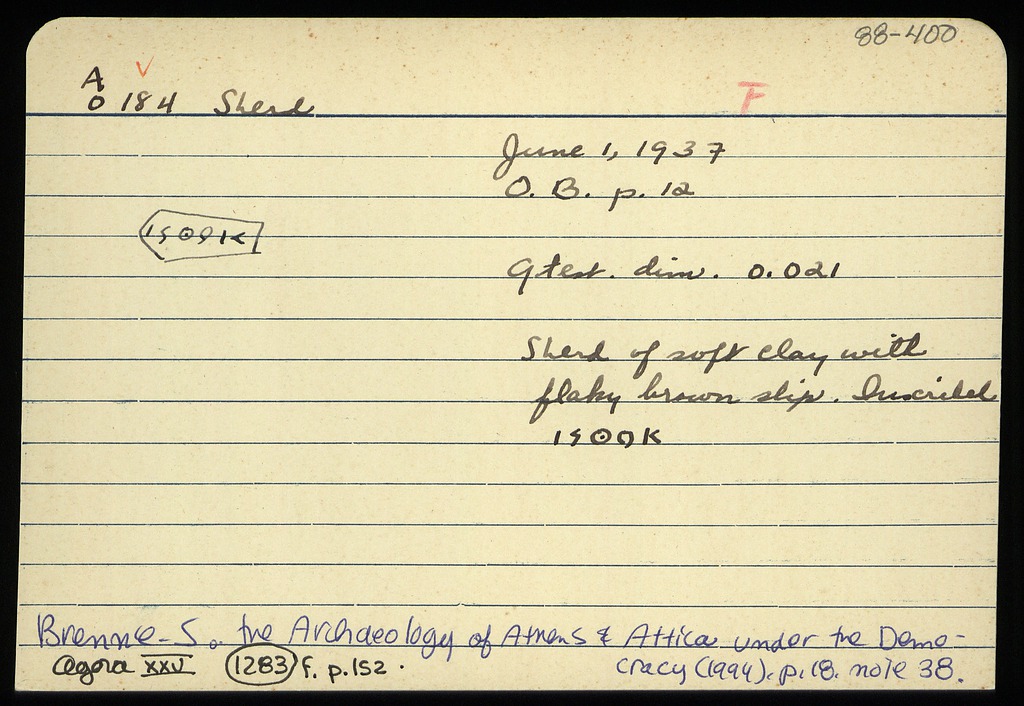 88-400
A V
O 184 Sherd F
June 1, 1937
O. B. p. 12
Gtest. dim. 0.021
Sherd of soft clay with
flaky brown slip. Inscribed
Brenne-S. the Archaeology of Athens & Attica under the Demo-
cracy (1994). p. 18. note 38.
Agora XXV (1283) f. p. 152.